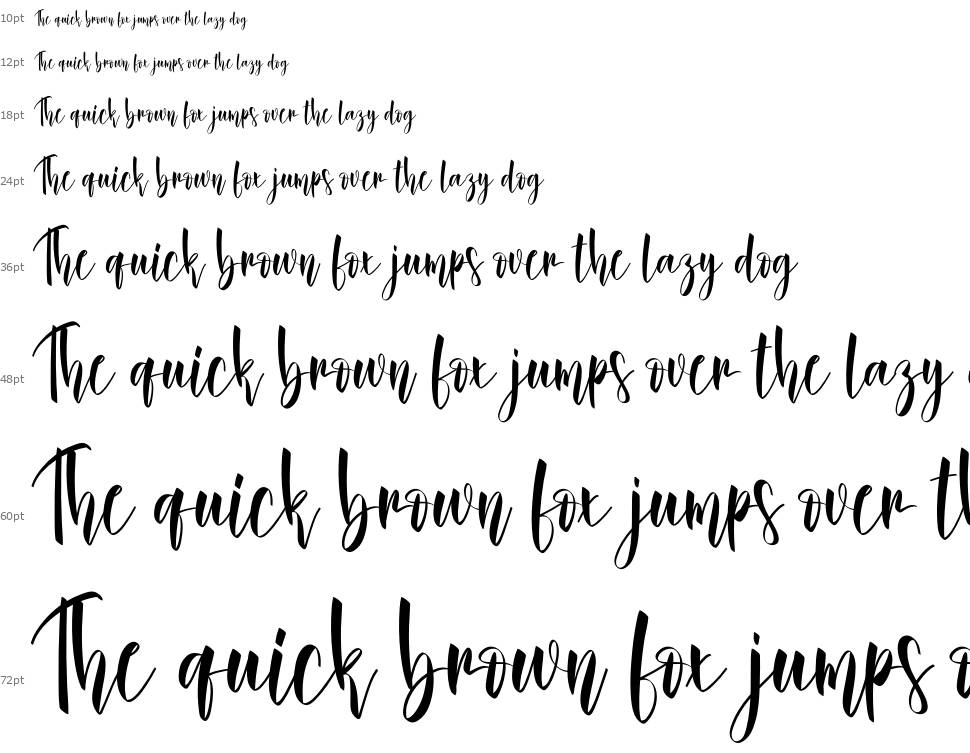 10pt The quick brown fox jumps over the lazy dog
12pt The quick brown fox jumps over the lazy dog
18pt The quick brown fox jumps over the lazy dog
24pt The quick brown fox jumps over the lazy dog
36pt The quick brown fox jumps over the lazy dog
48pt The quick brown fox jumps over the lazy
60pt The quick brown fox jumps over th
72pt The quick brown fox jumps o